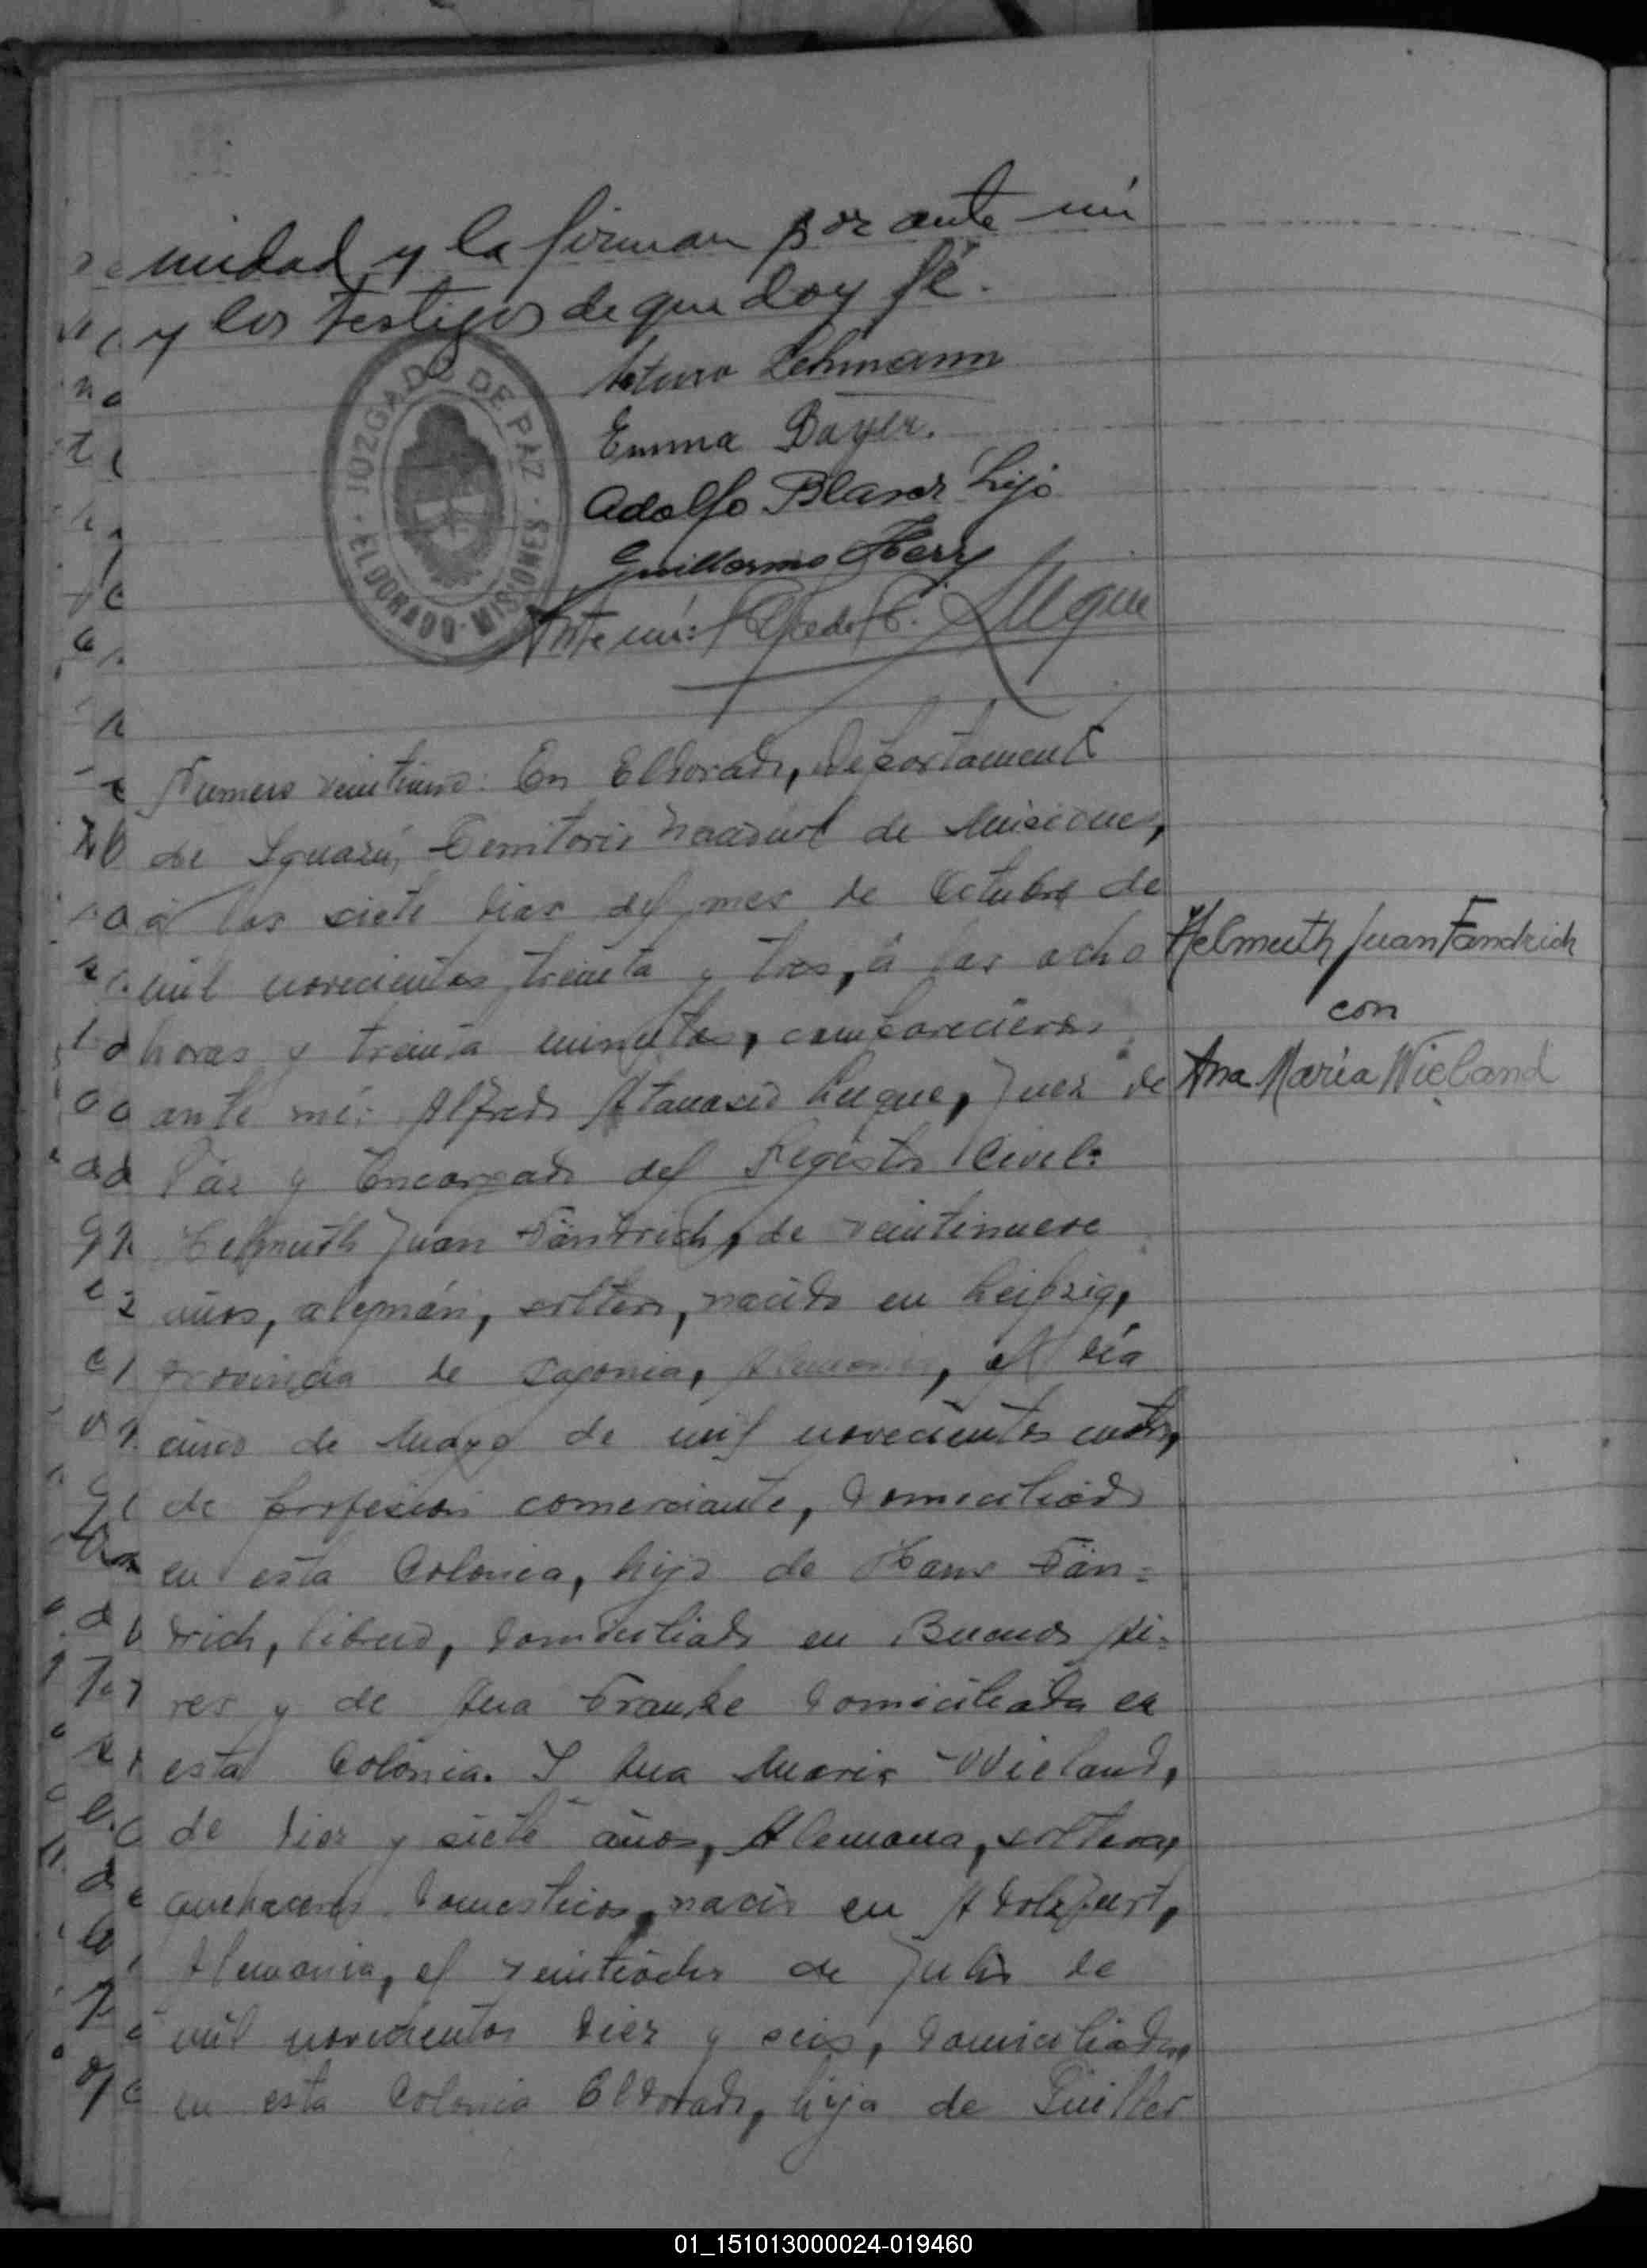 midad y la firman por ante mí
y los testigos de que doy fé.
Arturo Lehmann
Emma Bayer.
Adolfo Blaser hijo
Guillermo Herz
JUZGADO DE PAZ
ELDORADO - GOB. MISIONES
Ante mí: Alfredo A. Luque
Numero veintiuno: En Eldorado, departamento
de Iguazú, Territorio Nacional de Misiones,
á los siete dias del mes de Octubre de
mil novecientos treinta y tres, á las ocho
horas y treinta minutos, comparecieron
ante mí: Alfredo Atanasio Luque, Juez de
Páz y Encargado del Registro Civil:
Helmuth Juan Fändrich, de veintinueve
años, alemán, soltero, nacido en Leipzig,
provincia de Sajonia, Alemania, el día
cinco de Mayo de mil novecientos cuatro,
de profesion comerciante, domiciliado
en esta Colonia, hijo de Hans Fän=
drich, domiciliado en Buenos Ai=
res y de Ana Franke domiciliada en
esta Colonia. Y Ana Maria Wieland,
de diez y siete años, Alemana, soltera,
quehaceres domesticos, nació en
Alemania, el veintiocho de Julio de
mil novecientos diez y seis, domiciliada
en esta Colonia Eldorado, hija de Guiller
Helmuth Juan Fandrich
con
Ana María Wieland
01_151013000024-019460